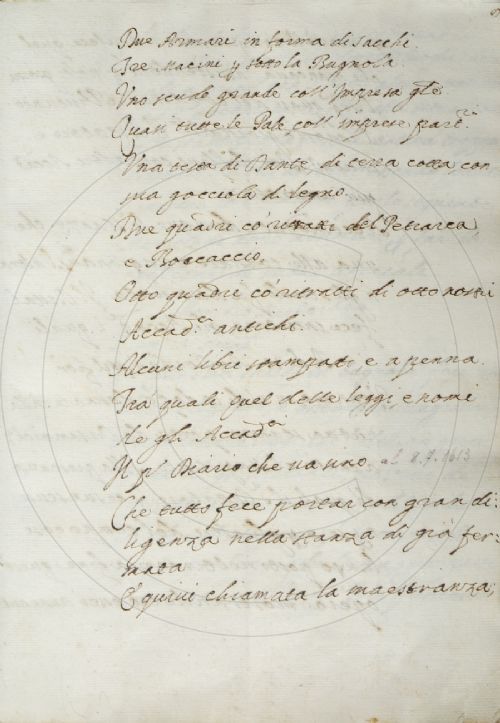 Due Armari in forma di sacchi.
Tre macini p sotto la Bugnola.
Uno scudo grande coll'Impresa gñle
Quasi tutte le Pale coll'imprese par.ri
Una testa di Dante, di terra cotta, con
sua gocciola di legno.
Due quadri co ritratti del Petrarca,
e Boccaccio.
Otto quadri co ritratti di otto nostri
Accad.ci antichi.
Alcuni libri stampati, e a penna.
Tra quali quel delle leggi, e nomi
de gli Accad.ci
Il pñ Diario che va uno al 8.7.1613
Che tutto fece portar con gran di:
ligenza nella stanza di già fer-
mata
E quivi chiamata la maestranza,